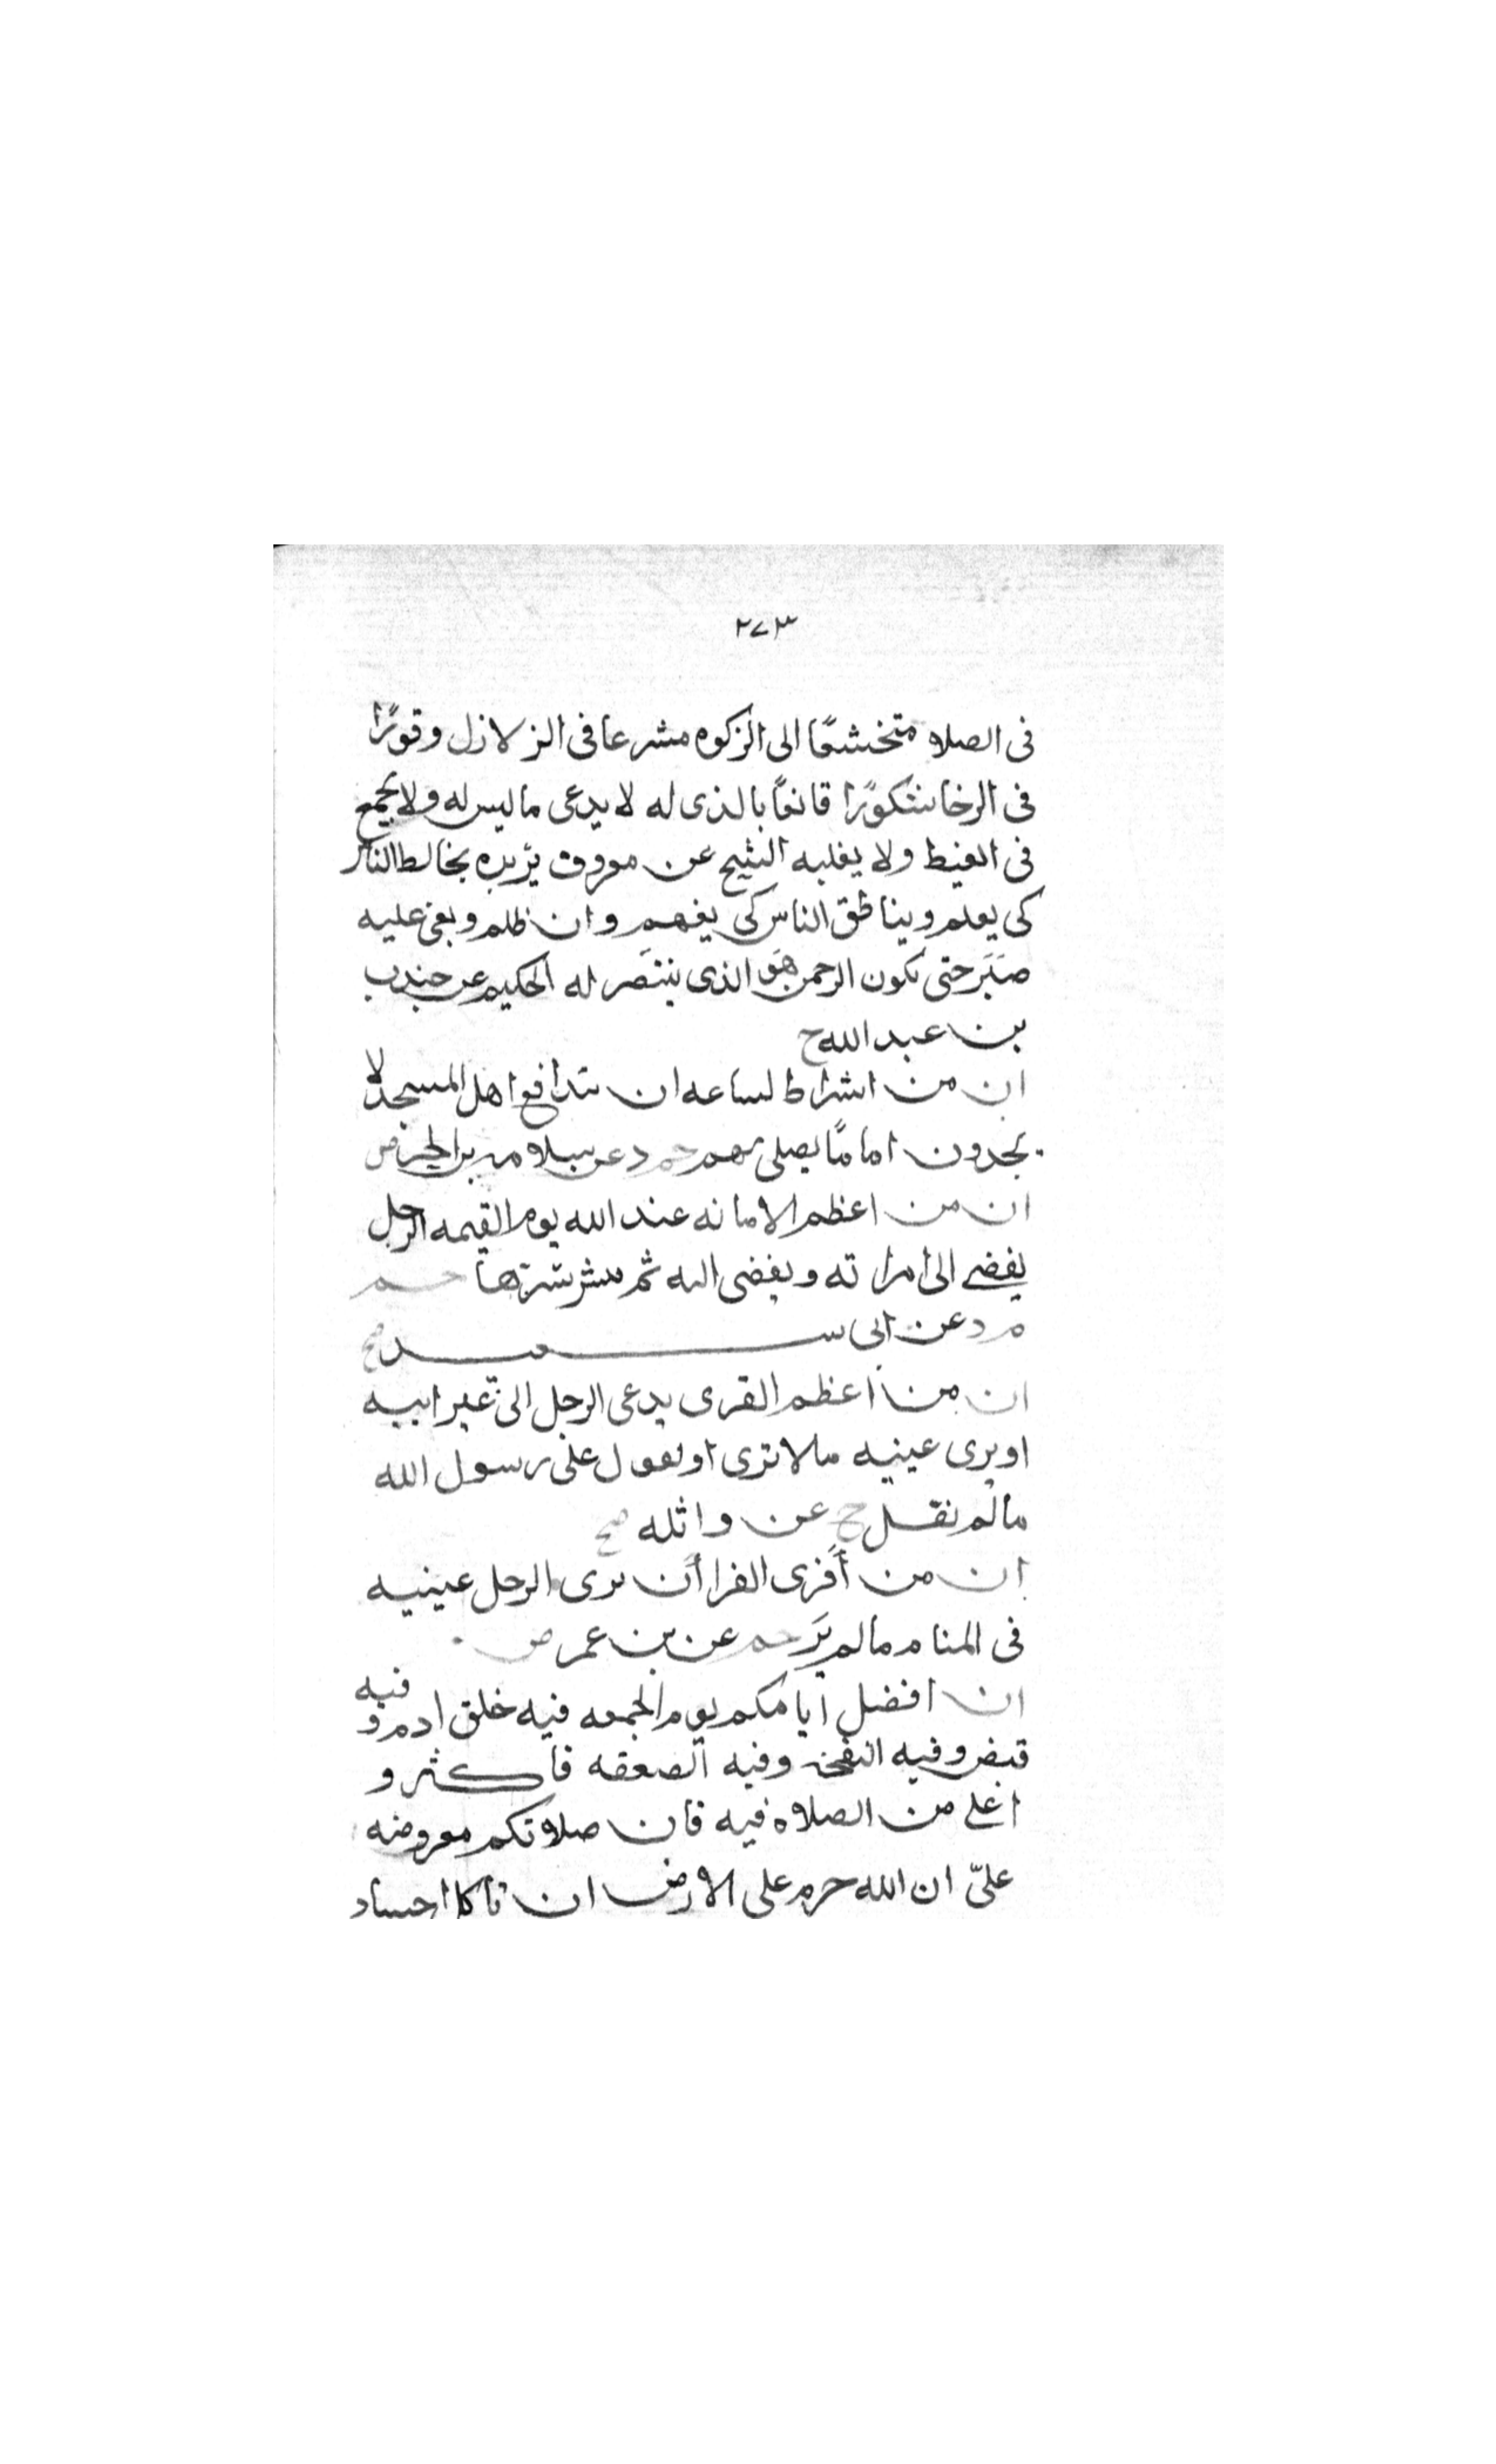 ٢٧٣
فى الصلاه متخشعًا الى الزكوه مسرعا فى الزلازل وقورًا
فى الرخا شكورًا قانعًا بالذى له لا يدعى ما ليس له ولا يجمع
فى الغيظ ولا يغلبه الشح عن معروف يريده يخالط الناس
كى يعلم ويناطق الناس كى يفهم وان ظلم وبغى عليه
صَبَر حتى يكون الرحمن هو الذى ينتصر له الحكيم عن جندب
بن عبد الله ح
ان من اشراط الساعه ان يتدافع اهل المسجد لا
يجدون امامًا يصلى بهم حم د عن سلامه بن الحر ض
ان من اعظم الامانه عند الله يوم القيمه الرجل
يفضى الى امراته وتفضى اليه ثم ينشر سرها حم
م د عن ابى سعيد صح
ان من اعظم الفرى يدعى الرجل الى غير ابيه
او يرى عينيه ما لا ترى او يقول على رسول الله
ما لم يقل خ عن واثله صح
ان من أفرى الفرا أن يرى الرجل عينيه
فى المنام ما لم يَرَ حم عن بن عمر ض
ان افضل ايامكم يوم الجمعه فيه خلق ادم وفيه
قبض وفيه النفخه وفيه الصعقه فاكثرو
ا على من الصلاه فيه فان صلاتكم معروضه
علىّ ان الله حرم على الارض ان تاكل اجساد